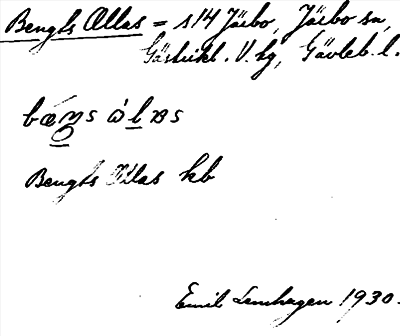 Bengts Ollas = s14 Järbo, Järbo sn,
Gästrikl. V. hg, Gävleb. l.
Bengts Ollas kb
Emil Lenhagen 1930.